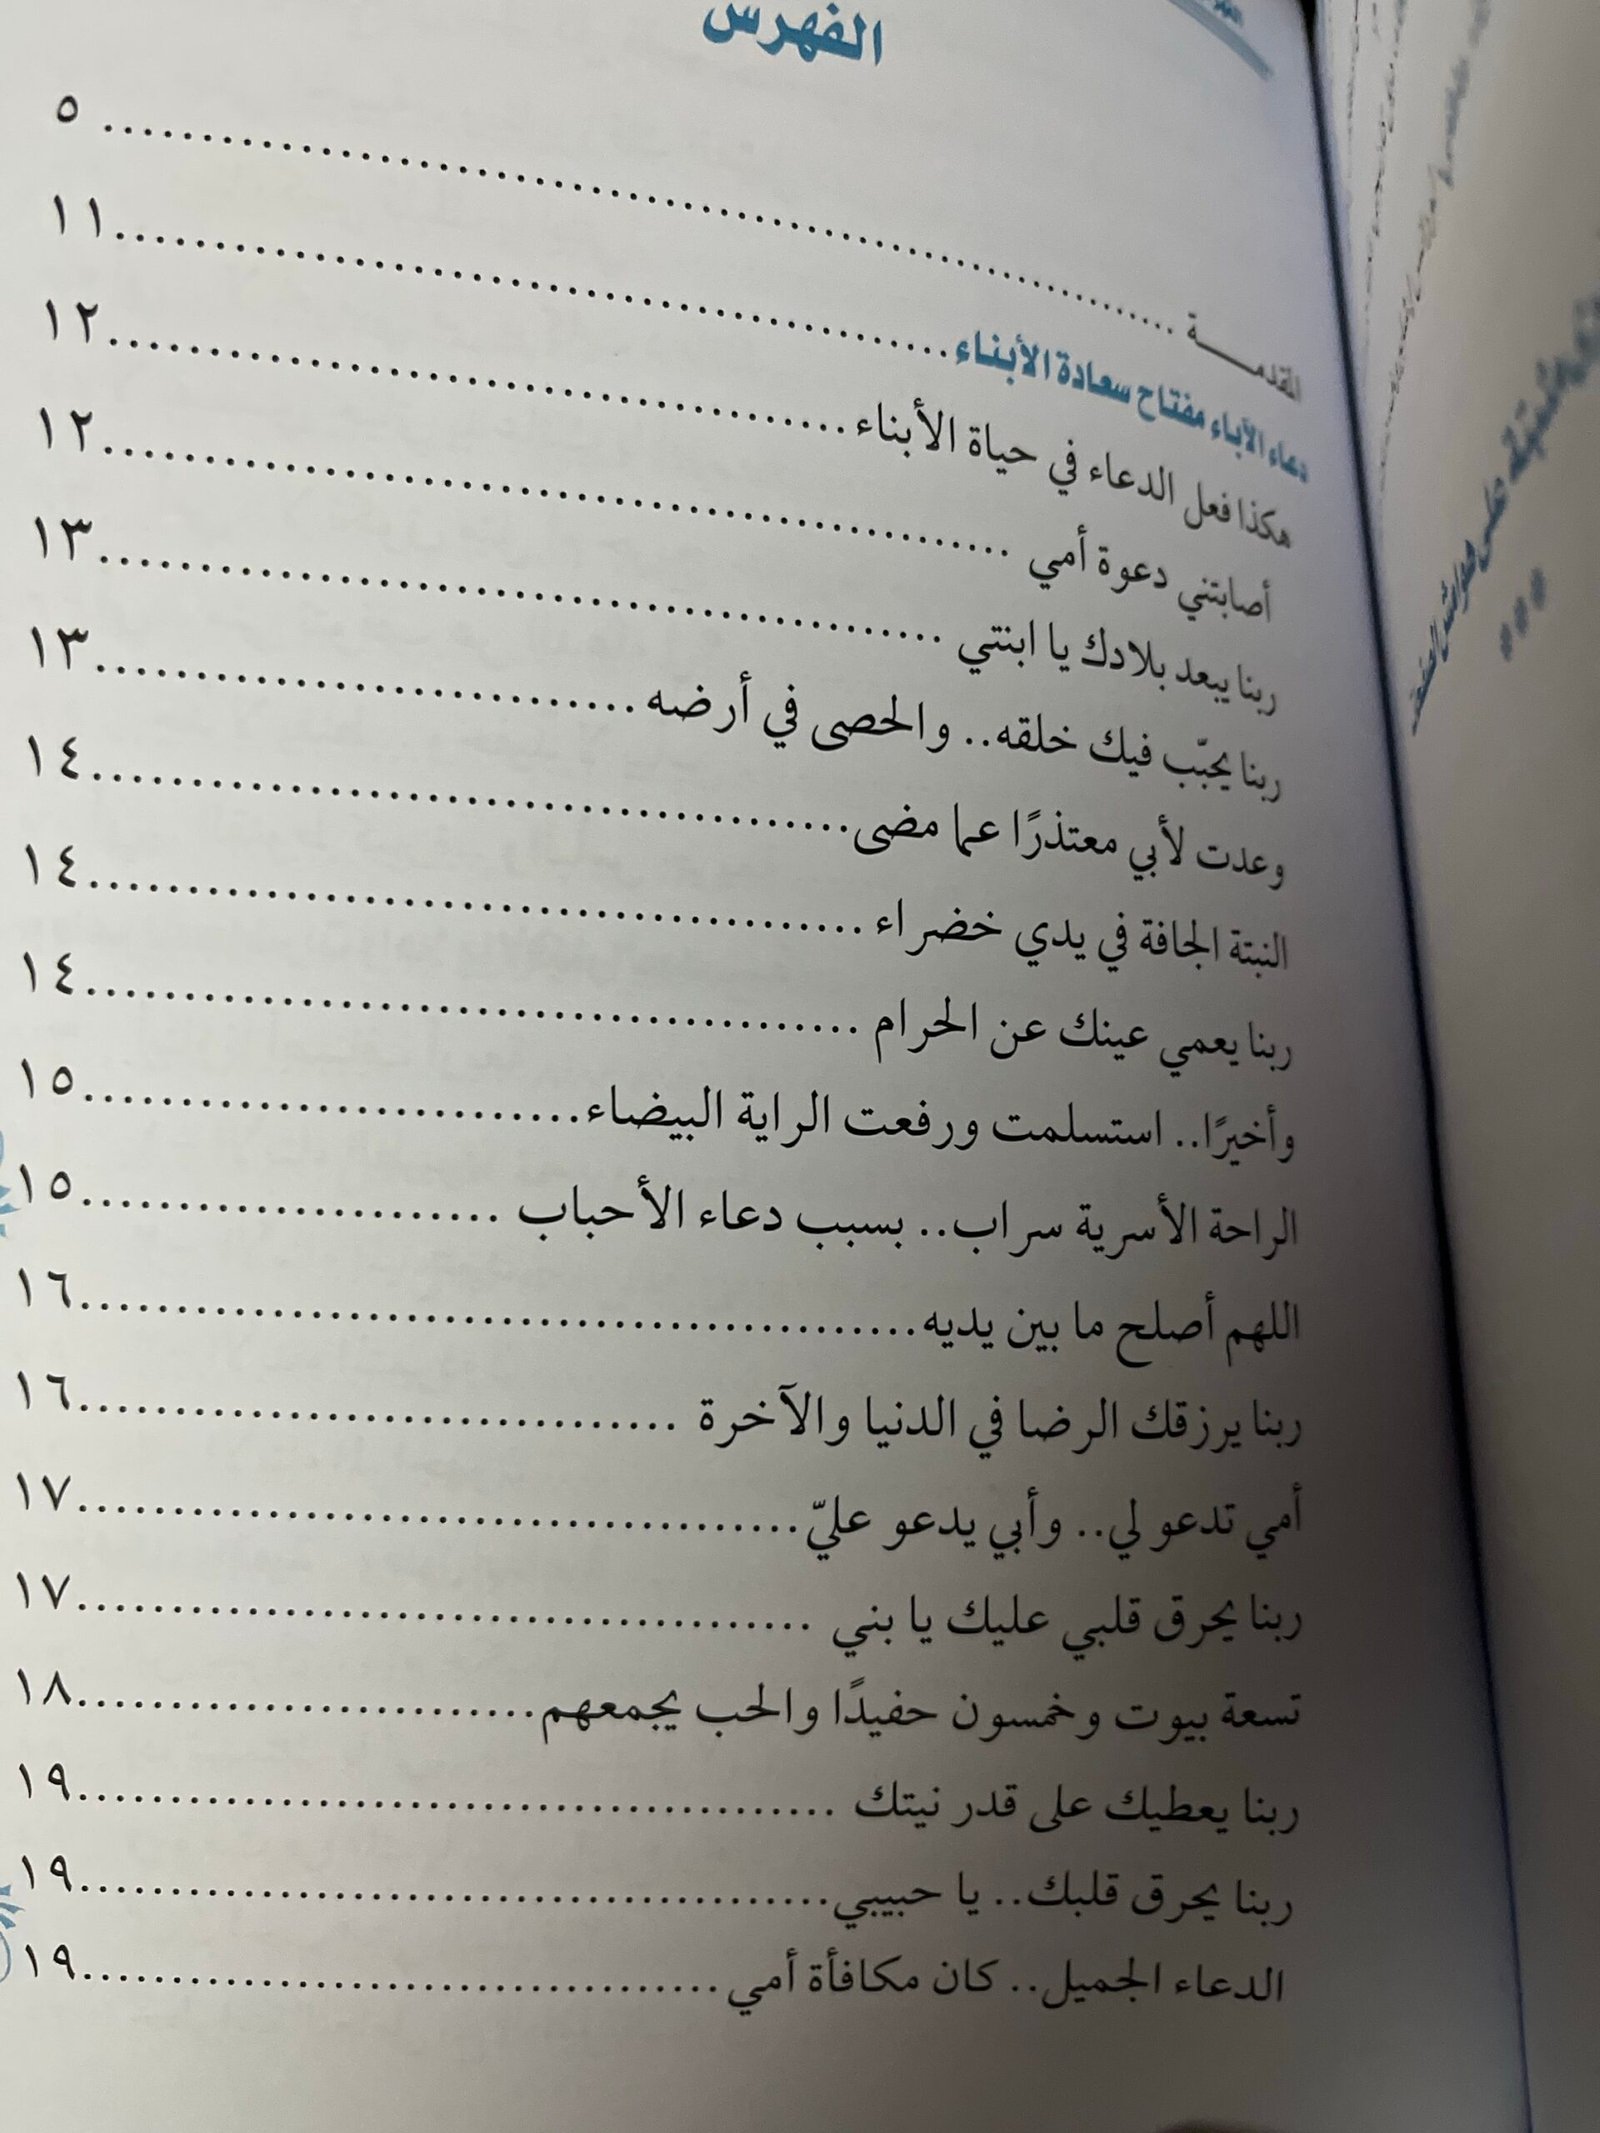 الفهرس
المقدمـــــة ........................................................ ٥
دعاء الآباء مفتاح سعادة الأبناء........................................ ١١
هكذا فعل الدعاء في حياة الأبناء........................................ ١٢
أصابتني دعوة أمي ........................................ ١٢
ربنا يبعد بلادك يا ابنتي ........................................ ١٣
ربنا يحبّب فيك خلقه.. والحصى في أرضه ............................ ١٣
وعدت لأبي معتذرًا عما مضى........................................ ١٤
النبتة الجافة في يدي خضراء ........................................ ١٤
ربنا يعمي عينك عن الحرام ........................................ ١٤
وأخيرًا.. استسلمت ورفعت الراية البيضاء.......................... ١٥
الراحة الأسرية سراب.. بسبب دعاء الأحباب ...................... ١٥
اللهم أصلح ما بين يديه........................................ ١٦
ربنا يرزقك الرضا في الدنيا والآخرة ................................ ١٦
أمي تدعو لي.. وأبي يدعو عليّ........................................ ١٧
ربنا يحرق قلبي عليك يا بني ........................................ ١٧
تسعة بيوت وخمسون حفيدًا والحب يجمعهم........................ ١٨
ربنا يعطيك على قدر نيتك ........................................ ١٩
ربنا يحرق قلبك.. يا حبيبي........................................ ١٩
الدعاء الجميل.. كان مكافأة أمي.................................. ١٩